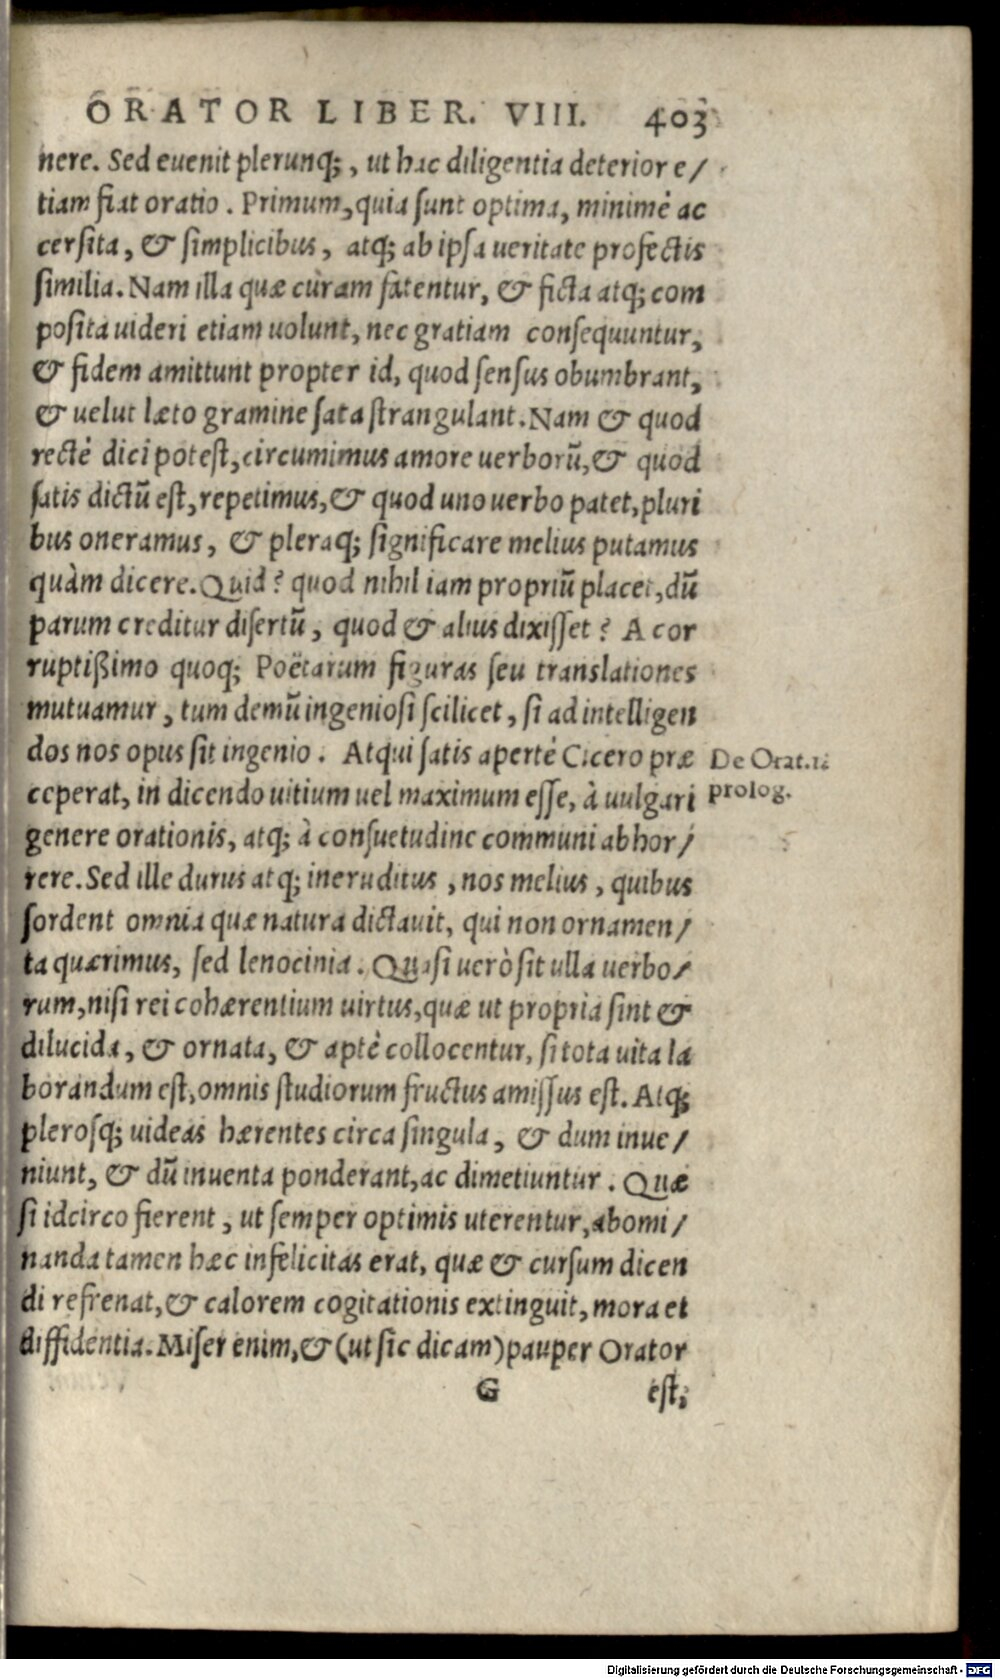 ORATOR LIBER. VIII. 403
nere. Sed evenit plerunq;, ut hac diligentia deterior e/
tiam fiat oratio. Primum, quia sunt optima, minimè ac
cersita, & simplicibus, atq; ab ipsa ueritate profectis
similia. Nam illa quæ curam fatentur, & ficta atq; com
posita uideri etiam uolunt, nec gratiam consequuntur,
& fidem amittunt propter id, quod sensus obumbrant,
& uelut læto gramine sata strangulant. Nam & quod
rectè dici potest, circumimus amore uerborũ, & quod
satis dictũ est, repetimus, & quod uno uerbo patet, pluri
bus oneramus, & pleraq; significare melius putamus
quàm dicere. Quid? quod nihil iam propriũ placet, dũ
parum creditur disertũ, quod & alius dixisset? A cor
ruptißimo quoq; Poëtarum figuras seu translationes
mutuamur, tum demũ ingeniosi scilicet, si ad intelligen
dos nos opus sit ingenio. Atqui satis apertè Cicero præ
ceperat, in dicendo uitium uel maximum esse, à uulgari
genere orationis, atq; à consuetudine communi abhor/
rere. Sed ille durus atq; ineruditus, nos melius, quibus
sordent omnia quæ natura dictavit, qui non ornamen/
ta quærimus, sed lenocinia. Quasi uerò sit ulla uerbo/
rum, nisi rei cohærentium uirtus, quæ ut propria sint &
dilucida, & ornata, & aptè collocentur, si tota uita la
borandum est, omnis studiorum fructus amissus est. Atq;
plerosq; uideas hærentes circa singula, & dum inue/
niunt, & dũ inventa ponderant, ac dimetiuntur. Quæ
si idcirco fierent, ut semper optimis uterentur, abomi/
nanda tamen hæc infelicitas erat, quæ & cursum dicen
di refrenat, & calorem cogitationis extinguit, mora et
diffidentia. Miser enim, & (ut sic dicam) pauper Orator
G est,
De Orat.
prolog.
Digitalisierung gefördert durch die Deutsche Forschungsgemeinschaft - DFG